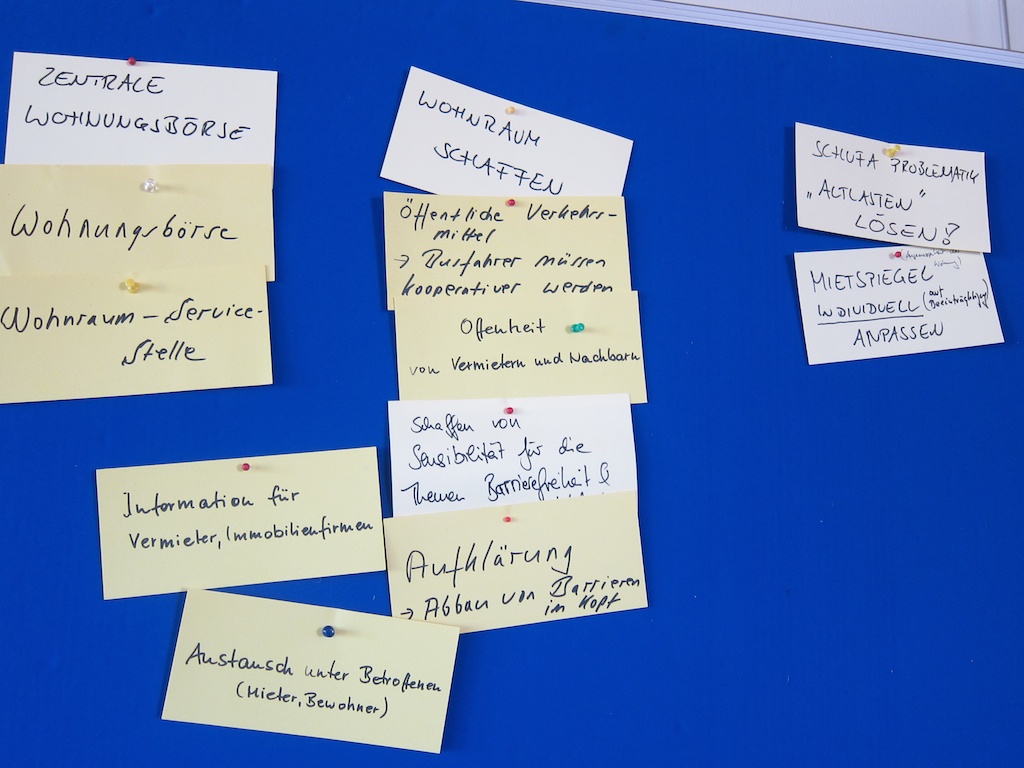 ZENTRALE
WOHNUNGSBÖRSE
Wohnungsbörse
Wohnraum-Service-
Stelle
Information für
Vermieter, Immobilienfirmen
Austausch unter Betroffenen
(Mieter, Bewohner)
WOHNRAUM
SCHAFFEN
Öffentliche Verkehrs-
mittel
→ Busfahrer müssen
kooperativer werden
Offenheit
von Vermietern und Nachbarn
Schaffen von
Sensibilität für die
Themen Barrierefreiheit &
Aufklärung
→ Abbau von Barrieren
im Kopf
SCHUFA PROBLEMATIK
„ALTLASTEN"
LÖSEN!?
MIETSPIEGEL
INDIVIDUELL (auf
Beeinträchtigung)
ANPASSEN